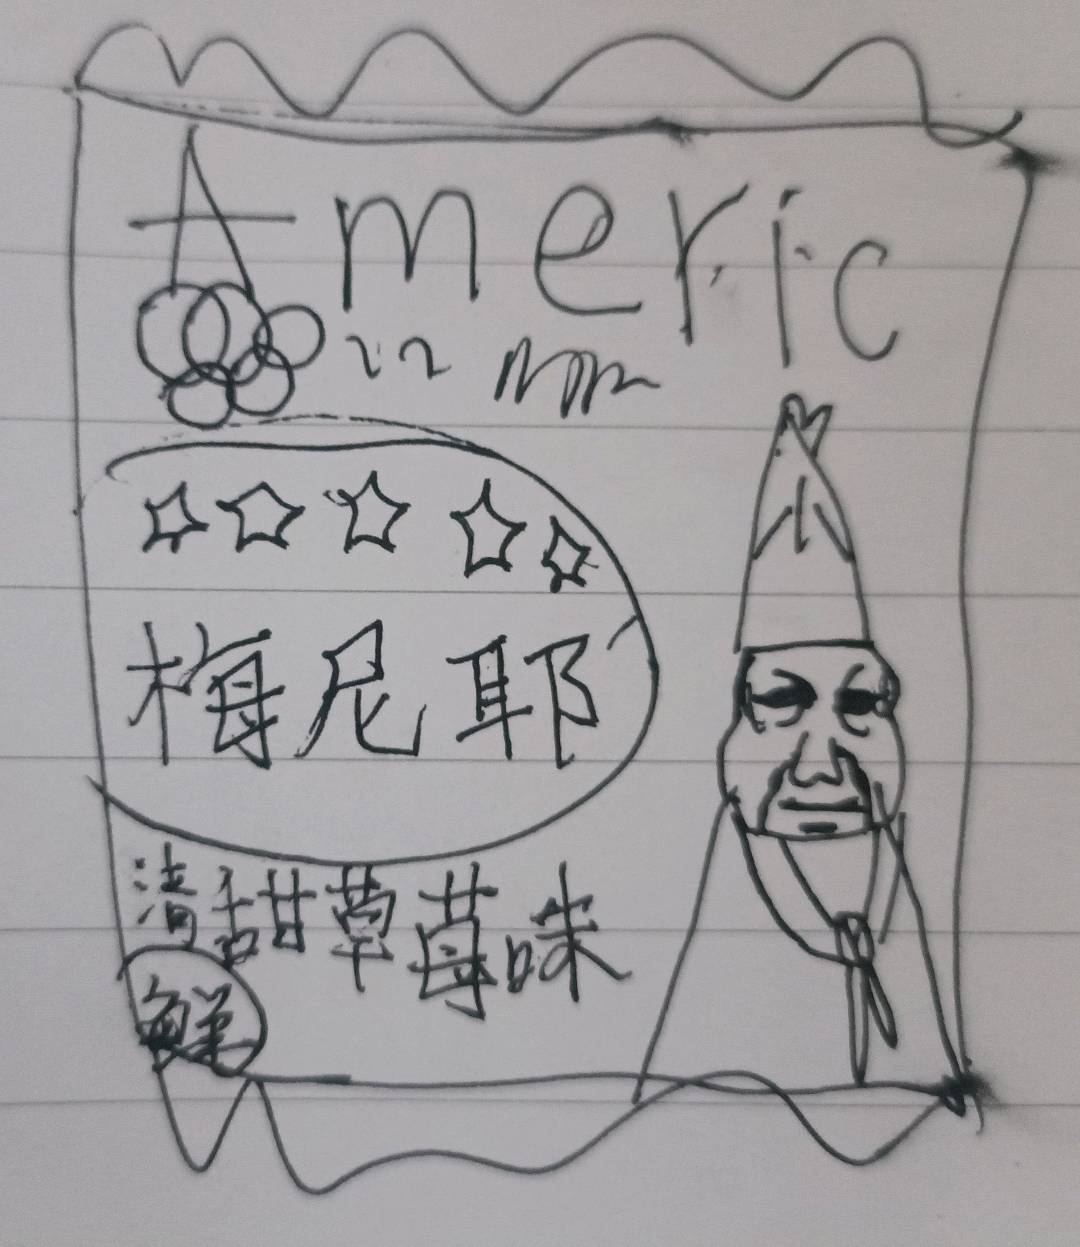 Americ
梅尼耶
清甜草莓味
鲜